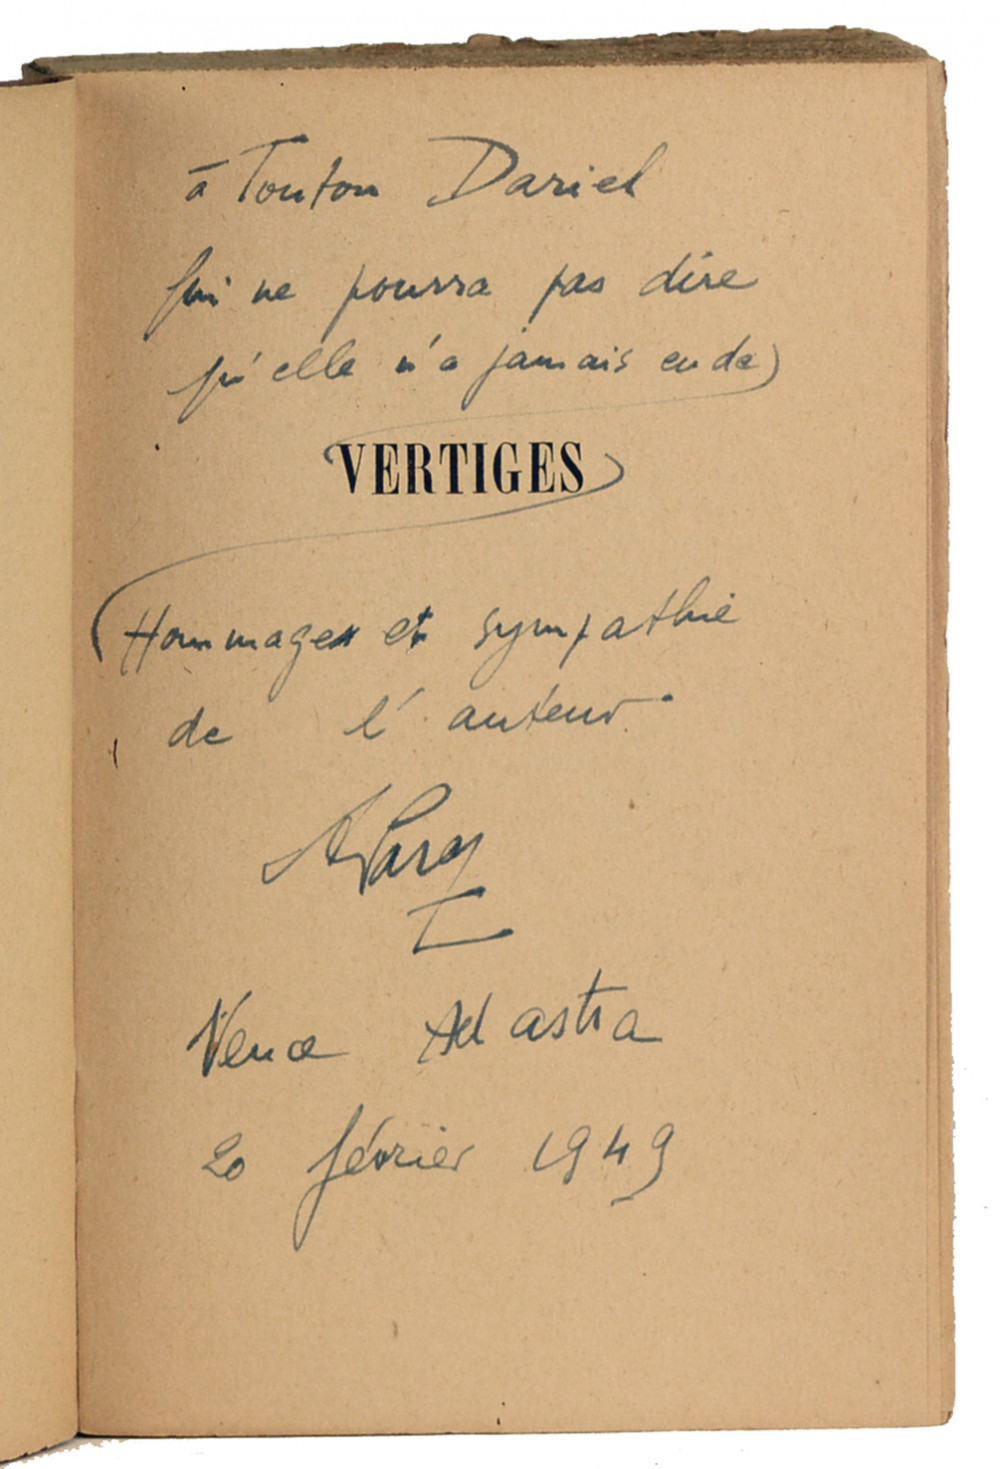 à Tonton Dariel
qui ne pourra pas dire
qu'elle n'a jamais eu de
VERTIGES
Hommage et sympathie
de l'auteur
Vence Ad astra
20 février 1949